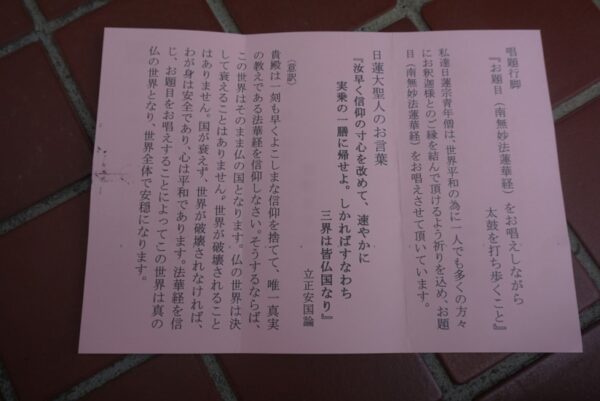 唱題行脚
『お題目（南無妙法蓮華経）をお唱えしながら
太鼓を打ち歩くこと』
私達日蓮宗青年僧は、世界平和の為に一人でも多くの方々
にお釈迦様とのご縁を結んで頂けるよう祈りを込め、お題
目（南無妙法蓮華経）をお唱えさせて頂いています。
日蓮大聖人のお言葉
『汝早く信仰の寸心を改めて、速やかに
実乗の一善に帰せよ。しかればすなわち
三界は皆仏国なり』
立正安国論
（意訳）
貴殿は一刻も早くよこしまな信仰を捨てて、唯一真実
の教えである法華経を信仰しなさい。そうするならば、
この世界はそのまま仏の国となります。仏の世界は決
して衰えることはありません。世界が破壊されること
はありません。国が衰えず、世界が破壊されなければ、
わが身は安全であり、心は平和であります。法華経を信
じ、お題目をお唱えすることによってこの世界は真の
仏の世界となり、世界全体で安穏になります。